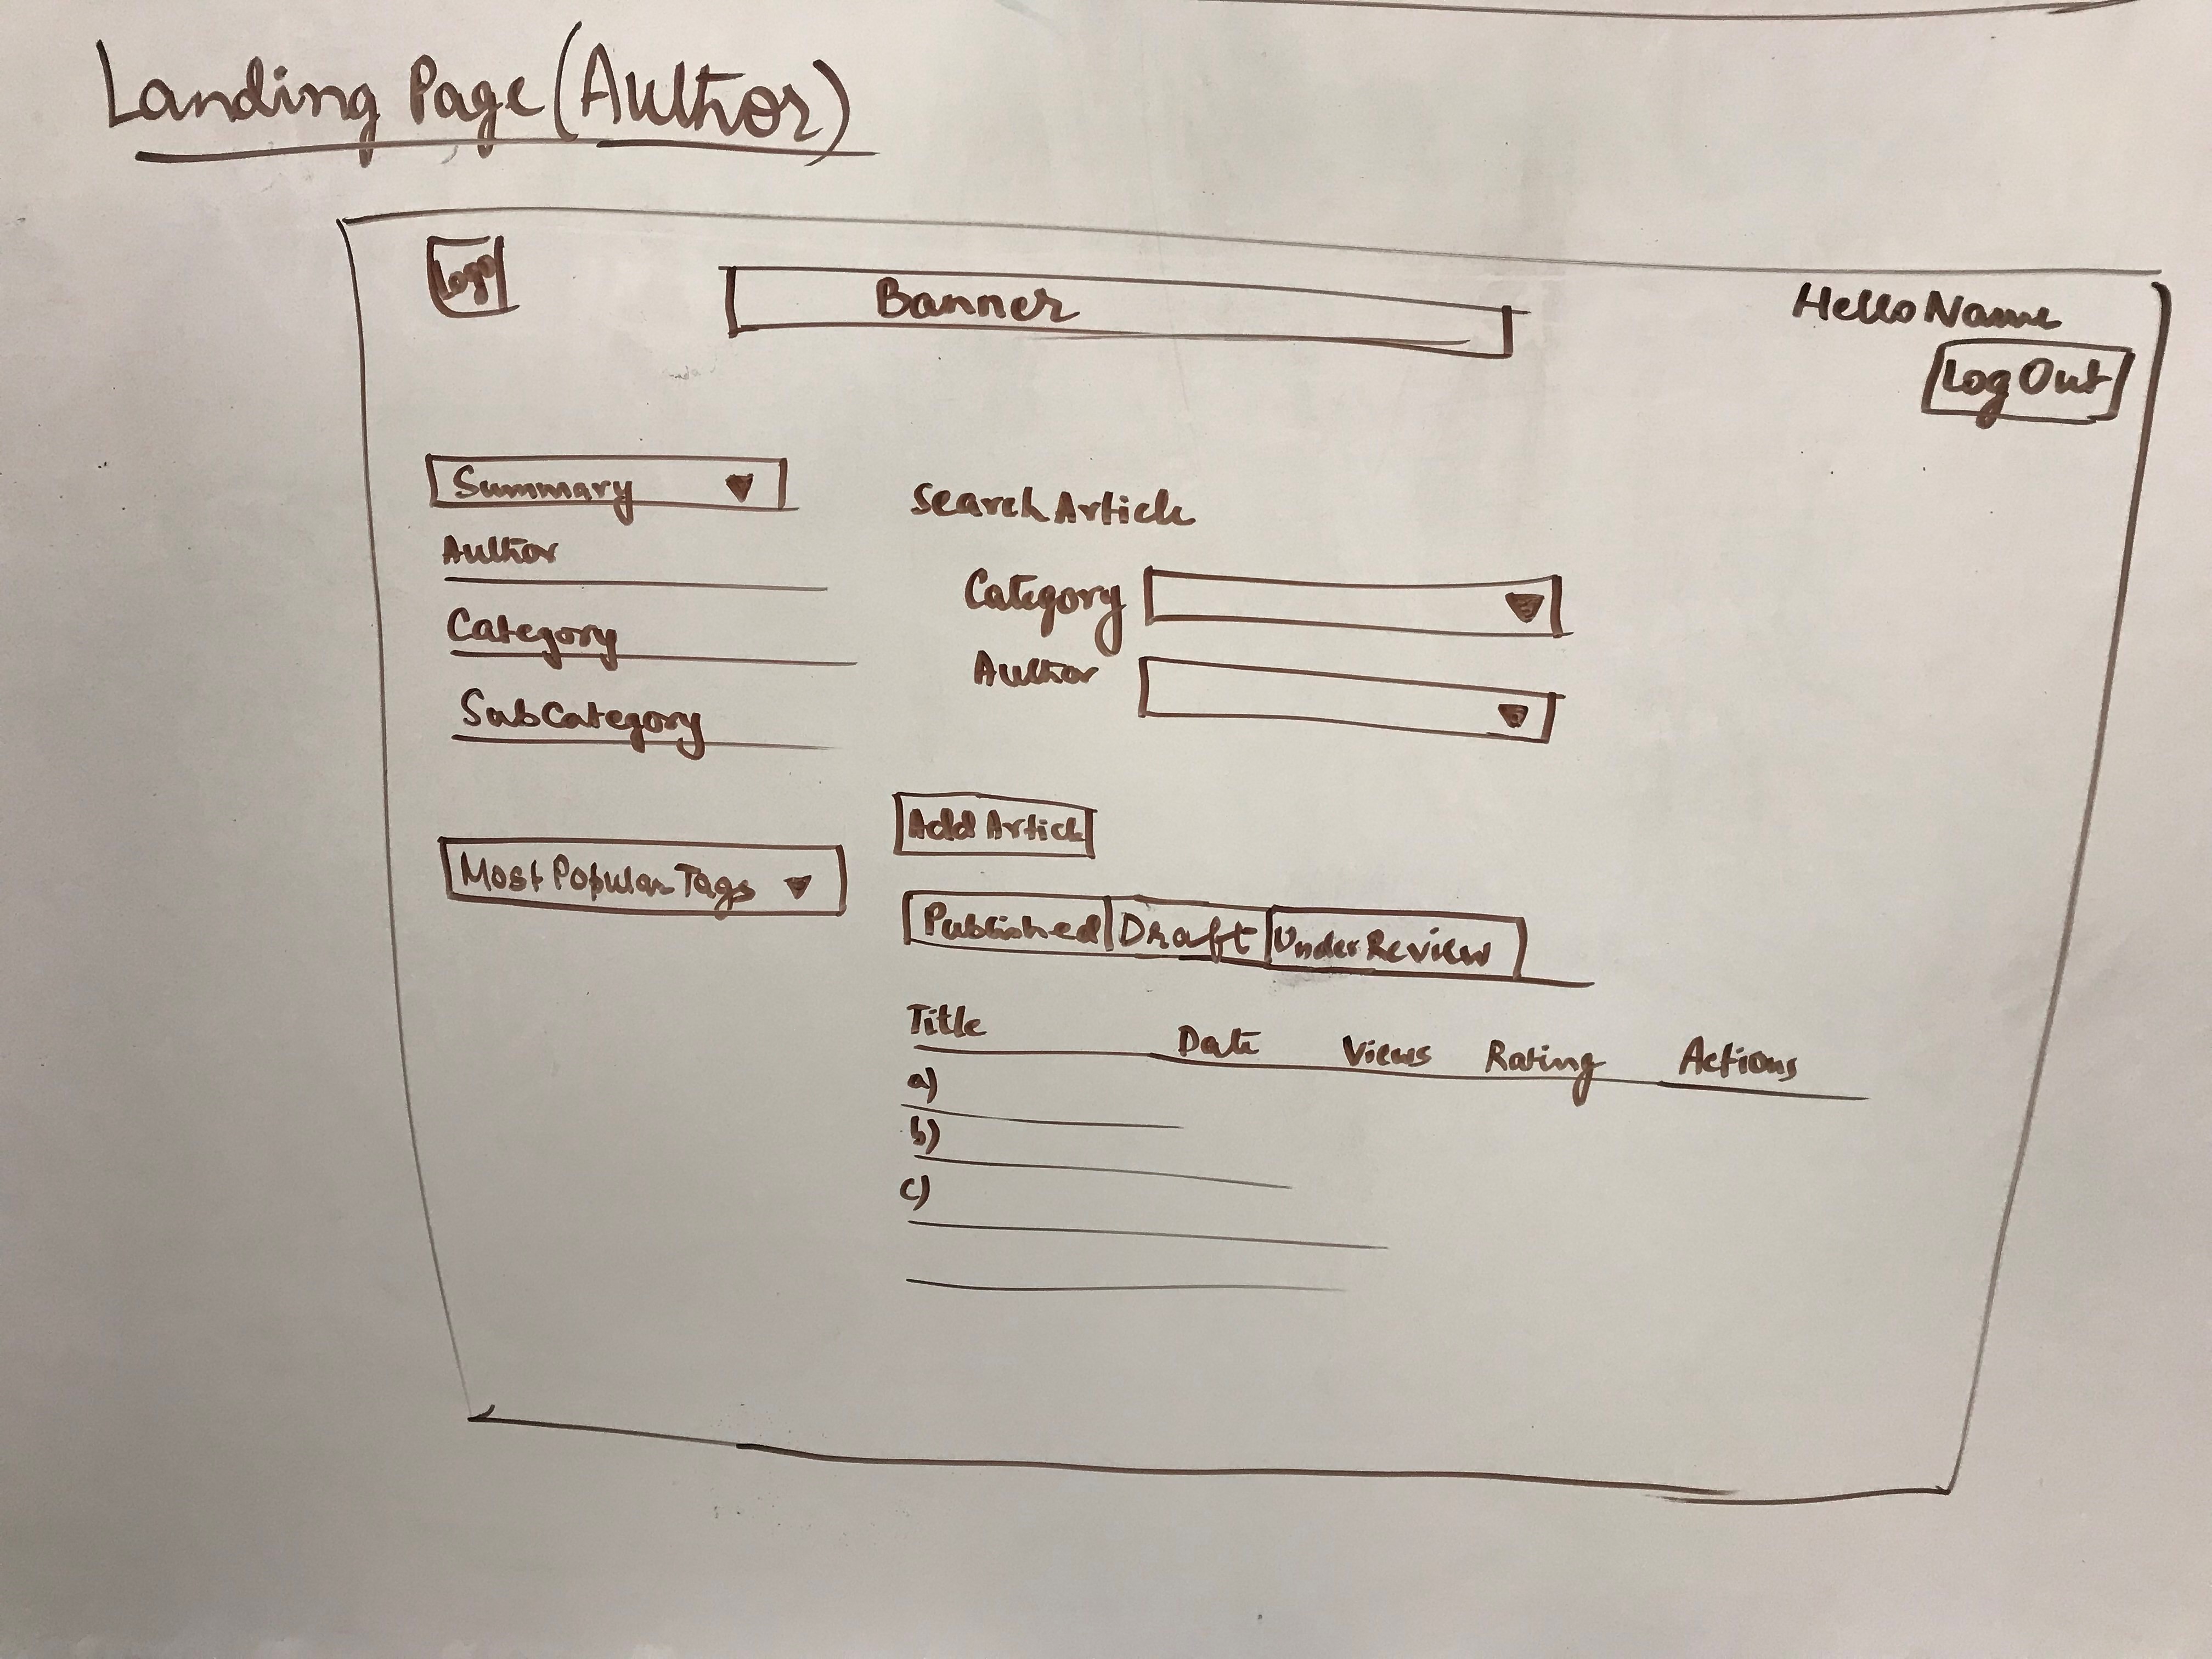 Landing Page (Author)
Logo
Banner
Hello Name
Log Out
Summary
Author
Category
SubCategory
Most Popular Tags
Search Article
Category
Author
Add Article
Published Draft Under Review
Title Date Views Rating Actions
a)
b)
c)